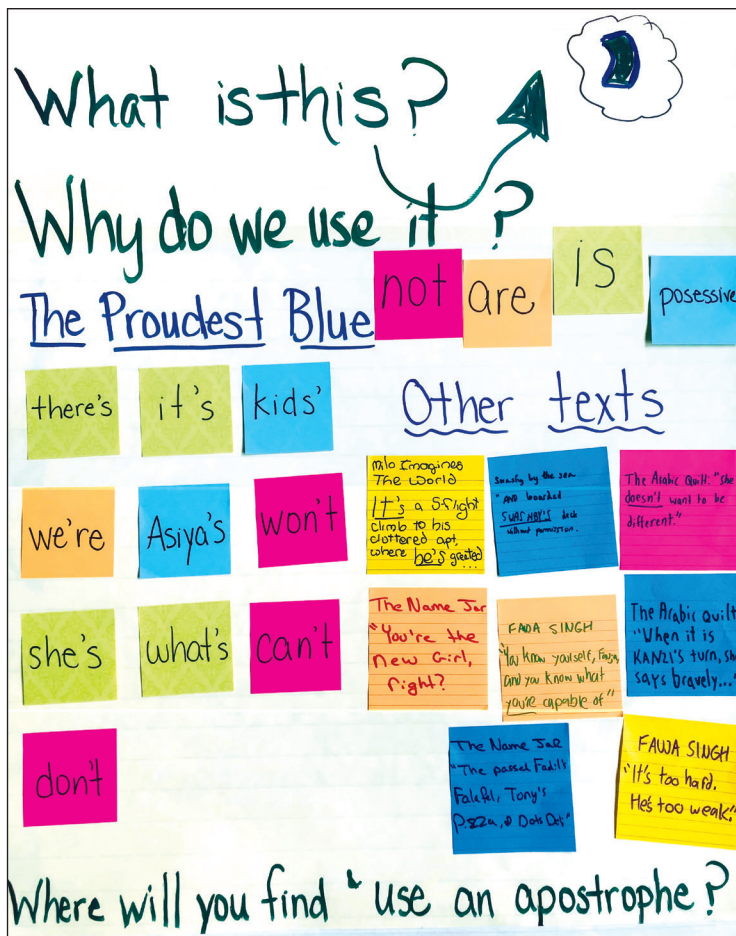 What is this?
Why do we use it ?
not
are
is
posessive
The Proudest Blue
there's
it's
kids'
we're
Asiya's
won't
she's
what's
can't
don't
Other texts
Milo Imagines
The World
It's a 5-flight
climb to his
cluttered apt,
where he's greeted
...
Swashby by the sea
"AND boarded
SWASHBY'S deck
without permission.
The Arabic Quilt: "She
doesn't want to be
different."
The Name Jar
"You're the
new Girl,
right?
FAUJA SINGH
"You know yourself, Fauja,
and you know what
you're capable of"
The Arabic Quilt
"When it is
KANZI'S turn, she
says bravely..."
The Name Jar
"The passed Fadil's
Falafel, Tony's
Pizza, & Dots Deli"
FAUJA SINGH
"It's too hard.
He's too weak."
Where will you find & use an apostrophe?